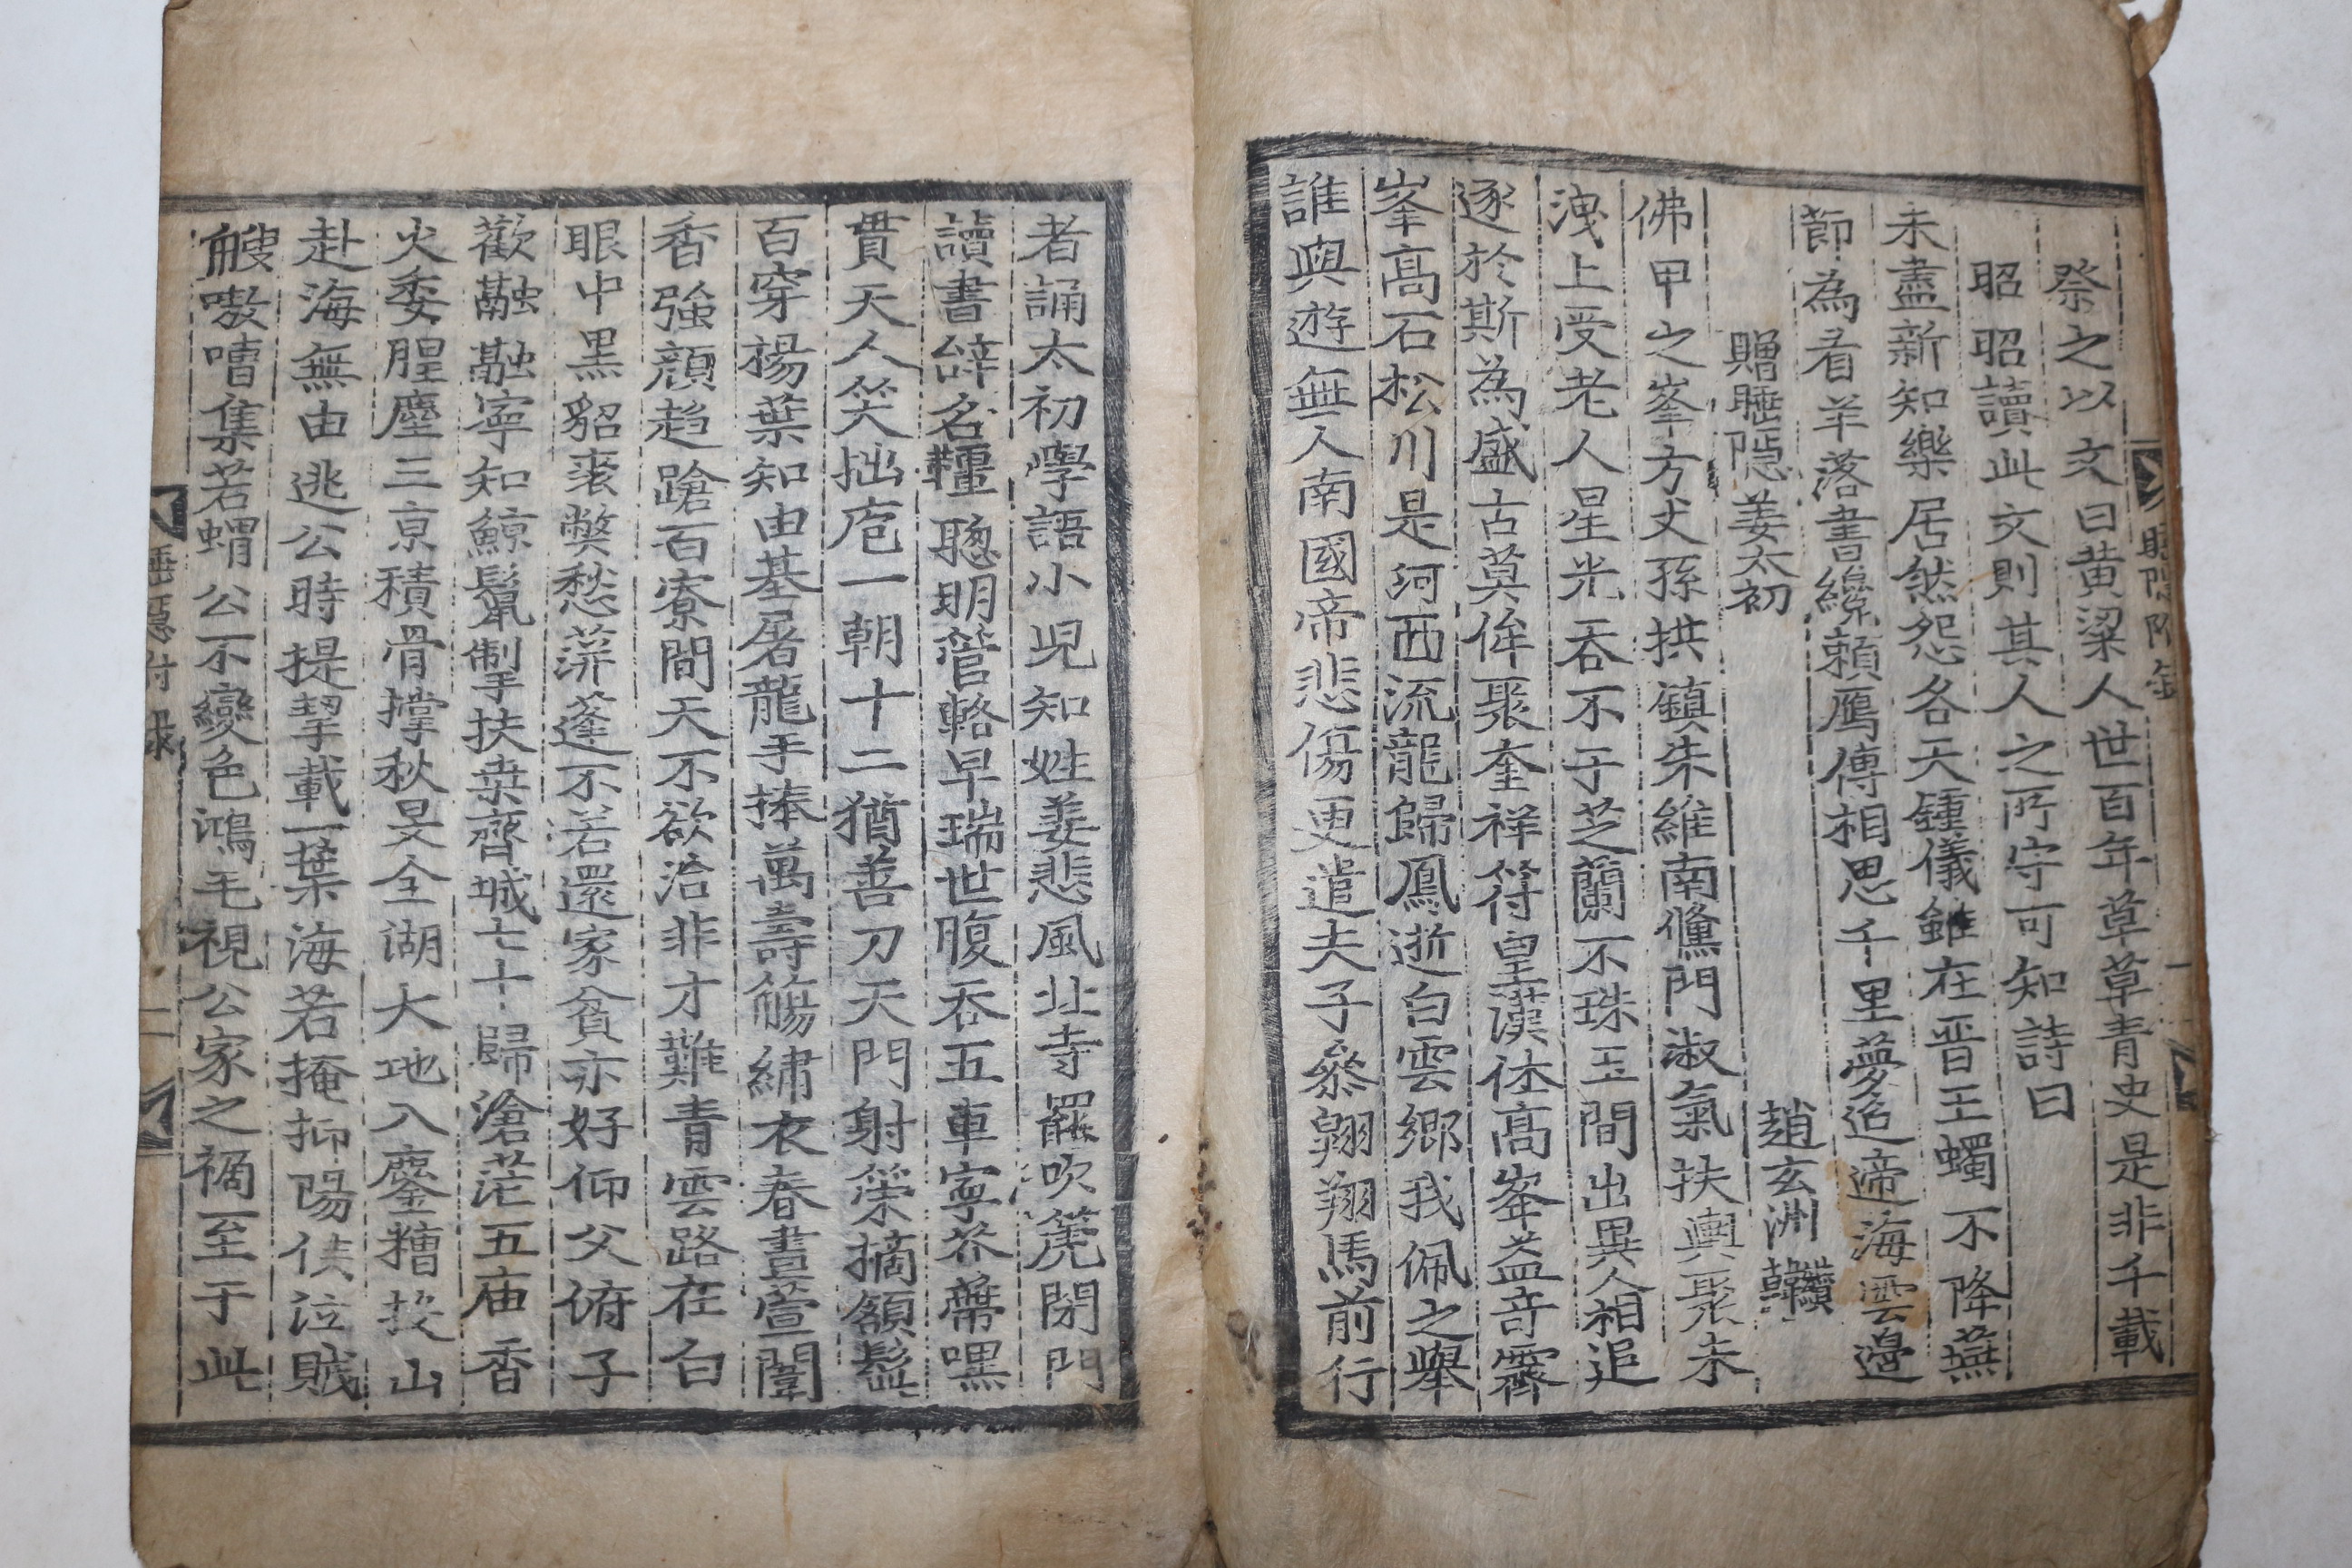 祭之以文曰黃粱人世百年草草靑史是非千載
昭昭讀此文則其人之所守可知詩曰
未盡新知樂居然怨各天鍾儀雖在晋王蠋不降燕
節爲看羊落書緣賴鴈傳相思千里夢迢遞海雲邊
贈睡隱姜太初
趙玄洲纘韓
佛甲之峯方丈孫拱鎭朱維南儻門淑氣扶輿聚未
洩上受老人星光吞不于芝蘭不珠玉間出異人相追
逐於斯爲盛古莫侔聚奎祥符皇漢休高峯益奇霽
峯高石松川是河西流龍歸鳳逝白雲鄕我佩之擧
誰與遊無人南國帝悲傷更遣夫子叅翶翔馬前行
者誦太初學語小兒知姓姜悲風北寺罷吹篪閉門
讀書辭名韁聰明管輅早瑞世腹吞五車寧芥蔕嘿
貫天人笑拙庖一朝十二猶善刀天門射策摘頷髭
百穿揚葉知由基屠龍手捧萬壽觴繡衣春晝萱闈
香強顔趋蹌百寮間天不欲治非才難靑雲路在白
眼中黑貂裘弊愁萍蓬不若還家貧亦好仰父俯子
歡融融寧知鯨鬣掣扶桒齊城七十歸滄茫五庙香
火委腥塵三京積骨撑秋旻全湖大地入鏖糟投山
赴海無由逃公時提挈載一葉海若掩抑陽侯泣賊
艘嗷嘈集若蝟公不變色鴻毛視公家之禍至于此
睡隱附錄
二